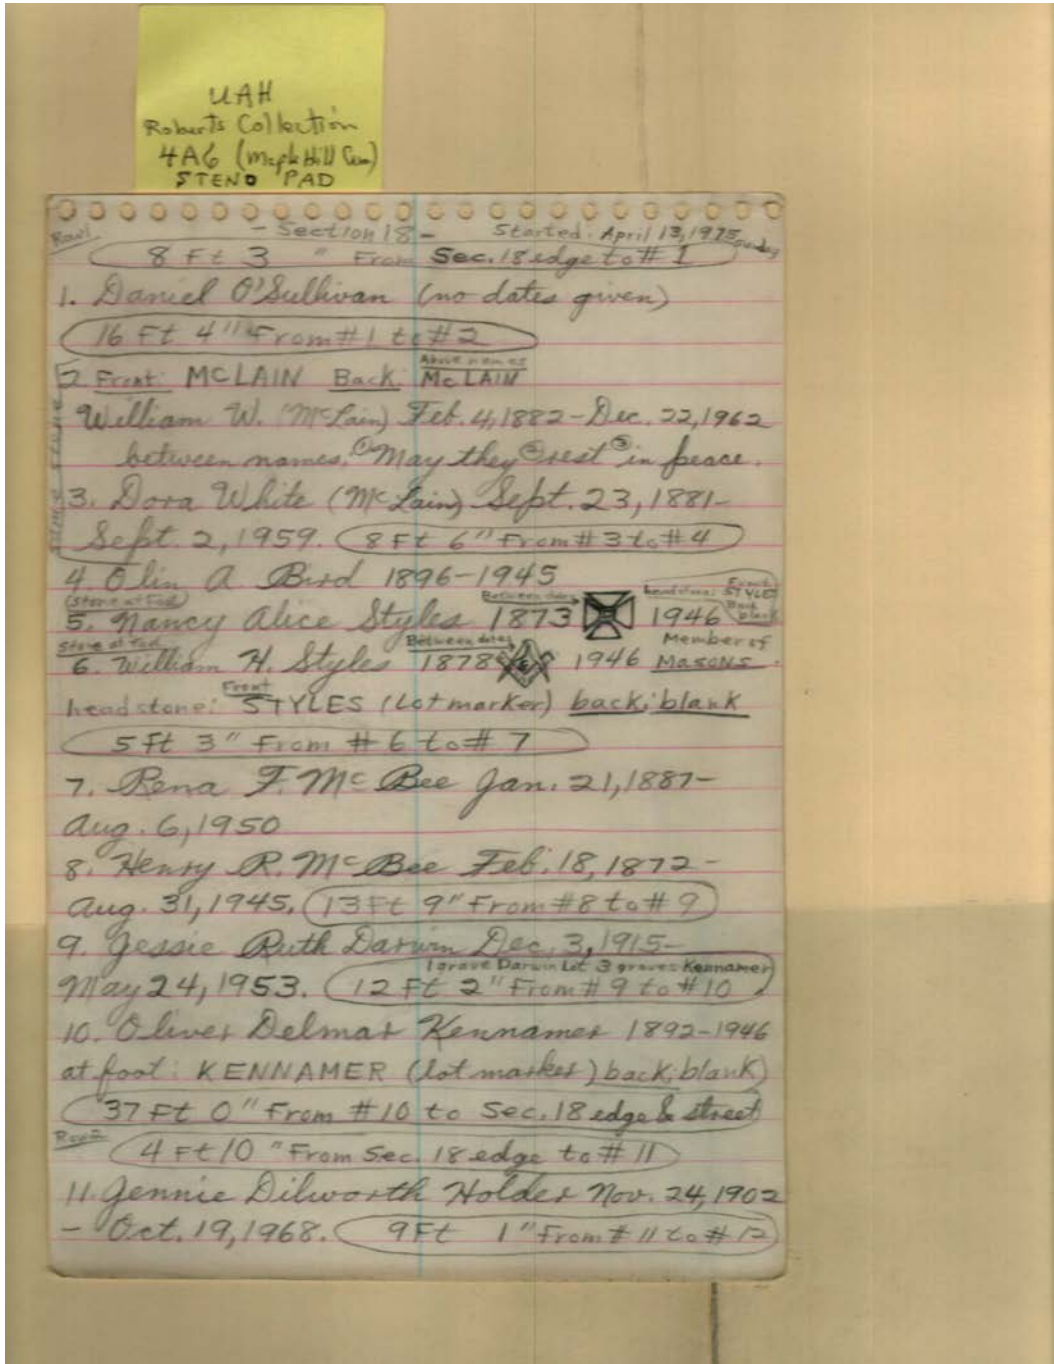 UAH
Roberts Collection
4A6 (Maple Hill Cem)
STENO PAD
Row 1 - Section 18 - Started: April 13, 1975 Sunday
8 Ft 3 " From Sec. 18 edge to # 1
1. Daniel O'Sullivan (no dates given)
16 Ft 4" From #1 to #2
Above names
2 Front: MCLAIN Back: McLAIN
same stone
William W. (McLain) Feb. 4, 1882 - Dec. 22, 1962
between names. ① May they ② rest ③ in peace.
3. Dora White (McLain) Sept. 23, 1881-
Sept. 2, 1959. 8 Ft 6" From #3 to #4
4. Olin A Bird 1896-1945
(Stone at Foot) Between dates headstone: Front: STYLES Back blank
5. Nancy Alice Styles 1873 1946
Stone at foot Between dates Member of
6. William H. Styles 1878 G 1946 Masons.
Front
headstone: STYLES (Lot marker) back: blank
5 Ft 3" From # 6 to # 7
7. Rena F. McBee Jan. 21, 1887-
Aug. 6, 1950
8. Henry R. McBee Feb. 18, 1872-
Aug. 31, 1945. 13 Ft 9" From #8 to # 9
9. Jessie Ruth Darwin Dec. 3, 1915-
1 grave Darwin Lot 3 graves Kennamer
May 24, 1953. 12 Ft 2" From # 9 to #10
10. Oliver Delmar Kennamer 1892-1946
at foot: KENNAMER (lot marker) back; blank)
37 Ft 0" From #10 to Sec. 18 edge & street
Row 2
4 Ft 10 " From Sec. 18 edge to # 11
11. Jennie Dilworth Holder Nov. 24, 1902
- Oct. 19, 1968. 9 Ft 1" From # 11 to # 12